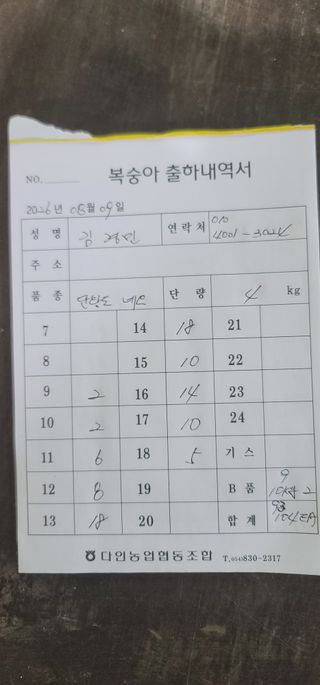 NO.
복숭아 출하내역서
2026년 08월 09일
성 명 김경민 연락처 010 4001-3024
주 소
품 종 단량 4 kg
7 14 18 21
8 15 10 22
9 2 16 14 23
10 2 17 10 24
11 6 18 5 기 스
12 8 19 B 품 9
13 18 20 합 계 93
다인농업협동조합 T.(054)830-2317